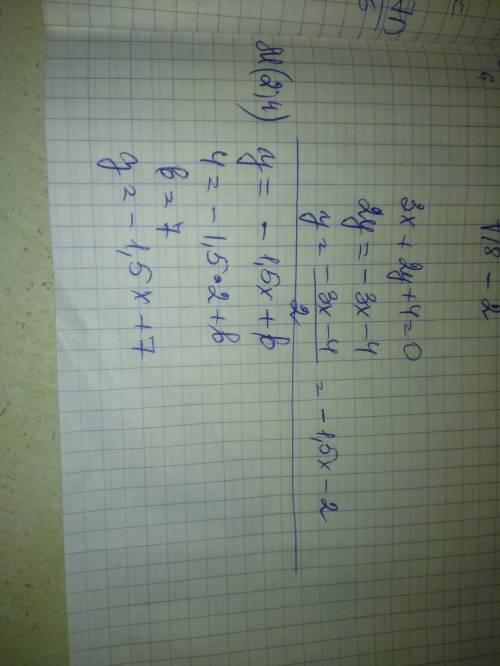 √18 - 2
3x + 2y + 4 = 0
2y = -3x - 4
y = (-3x - 4)/2 = -1,5x - 2
M(2;4) y = -1,5x + b
4 = -1,5 • 2 + b
b = 7
y = -1,5x + 7